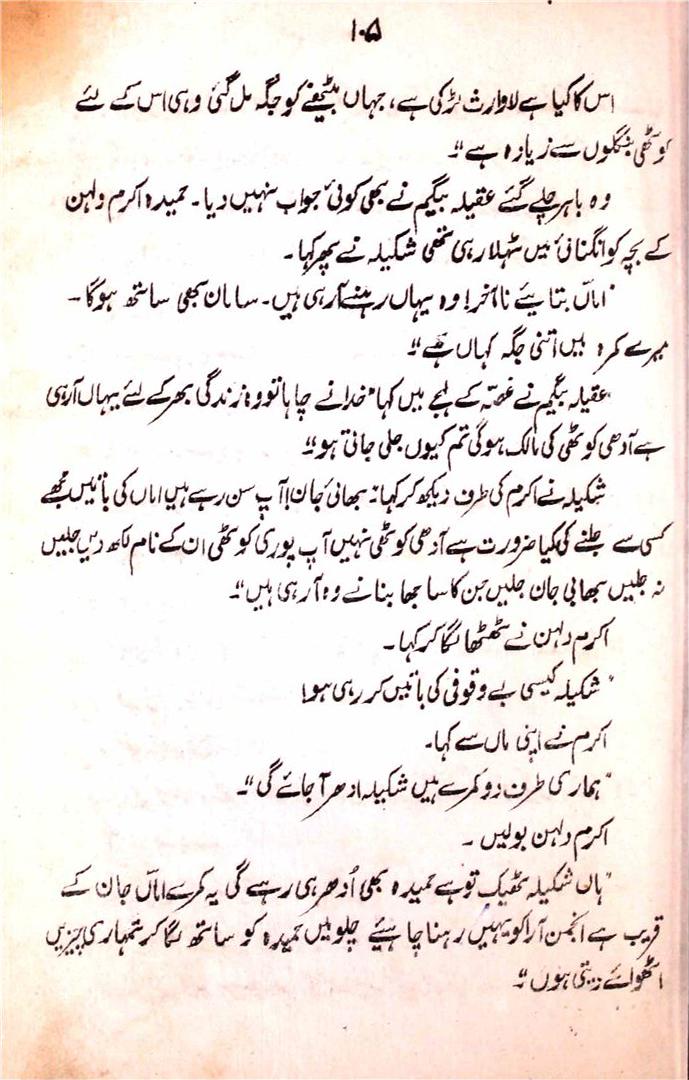 ۱۰۵
اس کا کیا ہے لاوارث لڑکی ہے، جہاں بیٹھنے کو جگہ مل گئی وہی اس کے لئے
کوٹھی بنگلوں سے زیادہ ہے"۔
وہ باہر چلے گئے عقیلہ بیگم نے بھی کوئی جواب نہیں دیا۔ حمیدہ اکرم دلہن
کے بچہ کو انگنائی میں ٹہلا رہی تھی شکیلہ نے پھر کہا۔
"اماں بتایئے نا آخر! وہ یہاں رہنے آرہی ہیں۔ سامان بھی ساتھ ہوگا۔
میرے کمرہ میں اتنی جگہ کہاں ہے"؟
عقیلہ بیگم نے غصّہ کے لہجے میں کہا "خدا نے چاہا تو وہ زندگی بھر کے لئے یہاں آرہی
ہے آدھی کوٹھی کی مالک ہوگی تم کیوں جلی جاتی ہو"؟
شکیلہ نے اکرم کی طرف دیکھ کر کہا۔ "بھائی جان! آپ سن رہے ہیں اماں کی باتیں مجھے
کسی سے جلنے کی کیا ضرورت ہے آدھی کوٹھی نہیں آپ پوری کوٹھی ان کے نام لکھ دیں جلیں
نہ جلیں بھابی جان جلیں جن کا ساجھا بنانے وہ آرہی ہیں"۔
اکرم دلہن نے ٹھٹھا لگا کر کہا۔
"شکیلہ کیسی بے وقوفی کی باتیں کر رہی ہو!
اکرم نے اپنی ماں سے کہا۔
"ہماری طرف دو کمرے ہیں شکیلہ ادھر آجائے گی"۔
اکرم دلہن بولیں ۔
"ہاں شکیلہ ٹھیک تو ہے حمیدہ بھی اُدھر ہی رہے گی یہ کمرے اماں جان کے
قریب ہے انجمن آرا کو یہیں رہنا چاہیئے چلو میں حمیدہ کو ساتھ لگا کر تمہاری چیزیں
اٹھوائے دیتی ہوں"۔